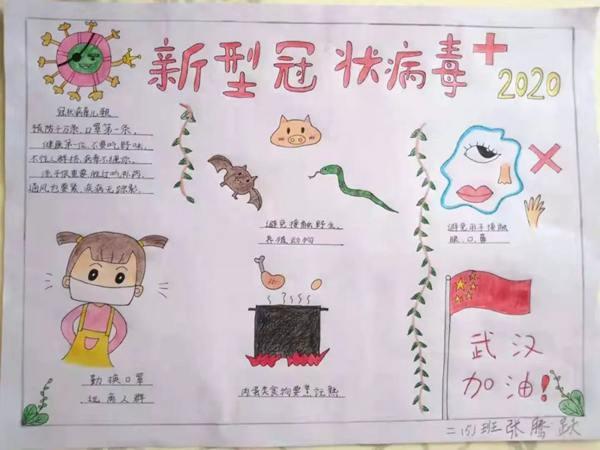 新型冠状病毒
2020
冠状病毒儿歌
预防千万条,口罩第一条,
健康第一位,不要吃野味,
不住人群挤,病毒不撞你,
洗手很重要,
通风也要紧,疾病无踪影.
避免接触野生、
养殖动物
避免用手接触
眼、口、鼻
勤换口罩
远离人群
肉蛋类食物要烹饪熟
武汉
加油!
二(5)班 张腾跃